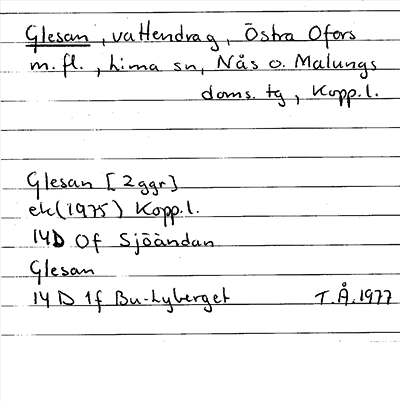 Glesan, vattendrag, Östra Ofors
m. fl., Lima sn, Nås o. Malungs
doms. tg, Kopp.l.
Glesan [2ggr]
ek(1975) Kopp.l.
14D Of Sjöändan
Glesan
14 D 1f Bu-Lyberget T.Å.1977